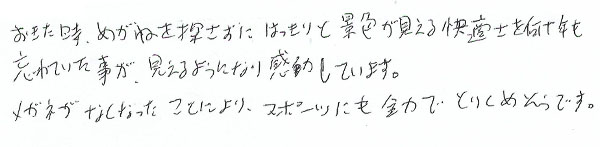 おきた時、めがねを探さずに はっきりと 景色が見える快適さを何十年も
忘れていた事が、見えるようになり感動しています。
メガネが なくなった ことにより、スポーツにも 全力で とりくめそうです。